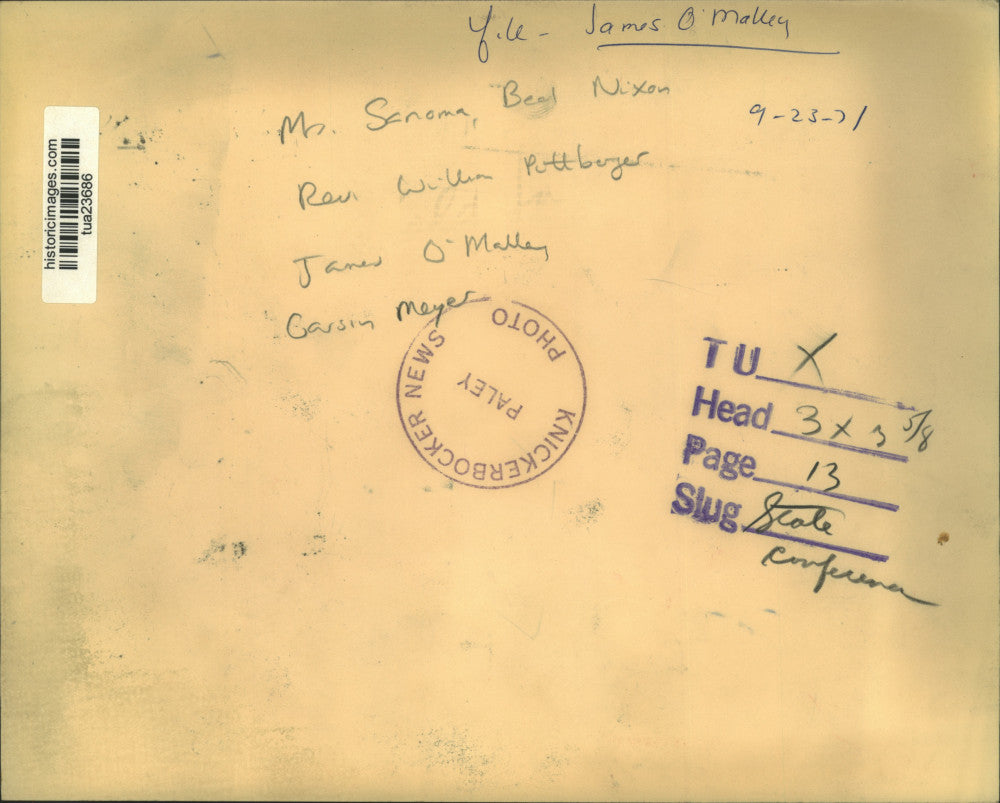 File - James O'Malley
Mr. Sanoma, Nixon
9-23-71
Rev. William Puttburger
James O'Malley
Garsin Meyer
KNICKERBOCKER NEWS
PHOTO
PALEY
TU X
Head 3 x 3 5/8
Page 13
Slug State
conference
historicimages.com
tua23686